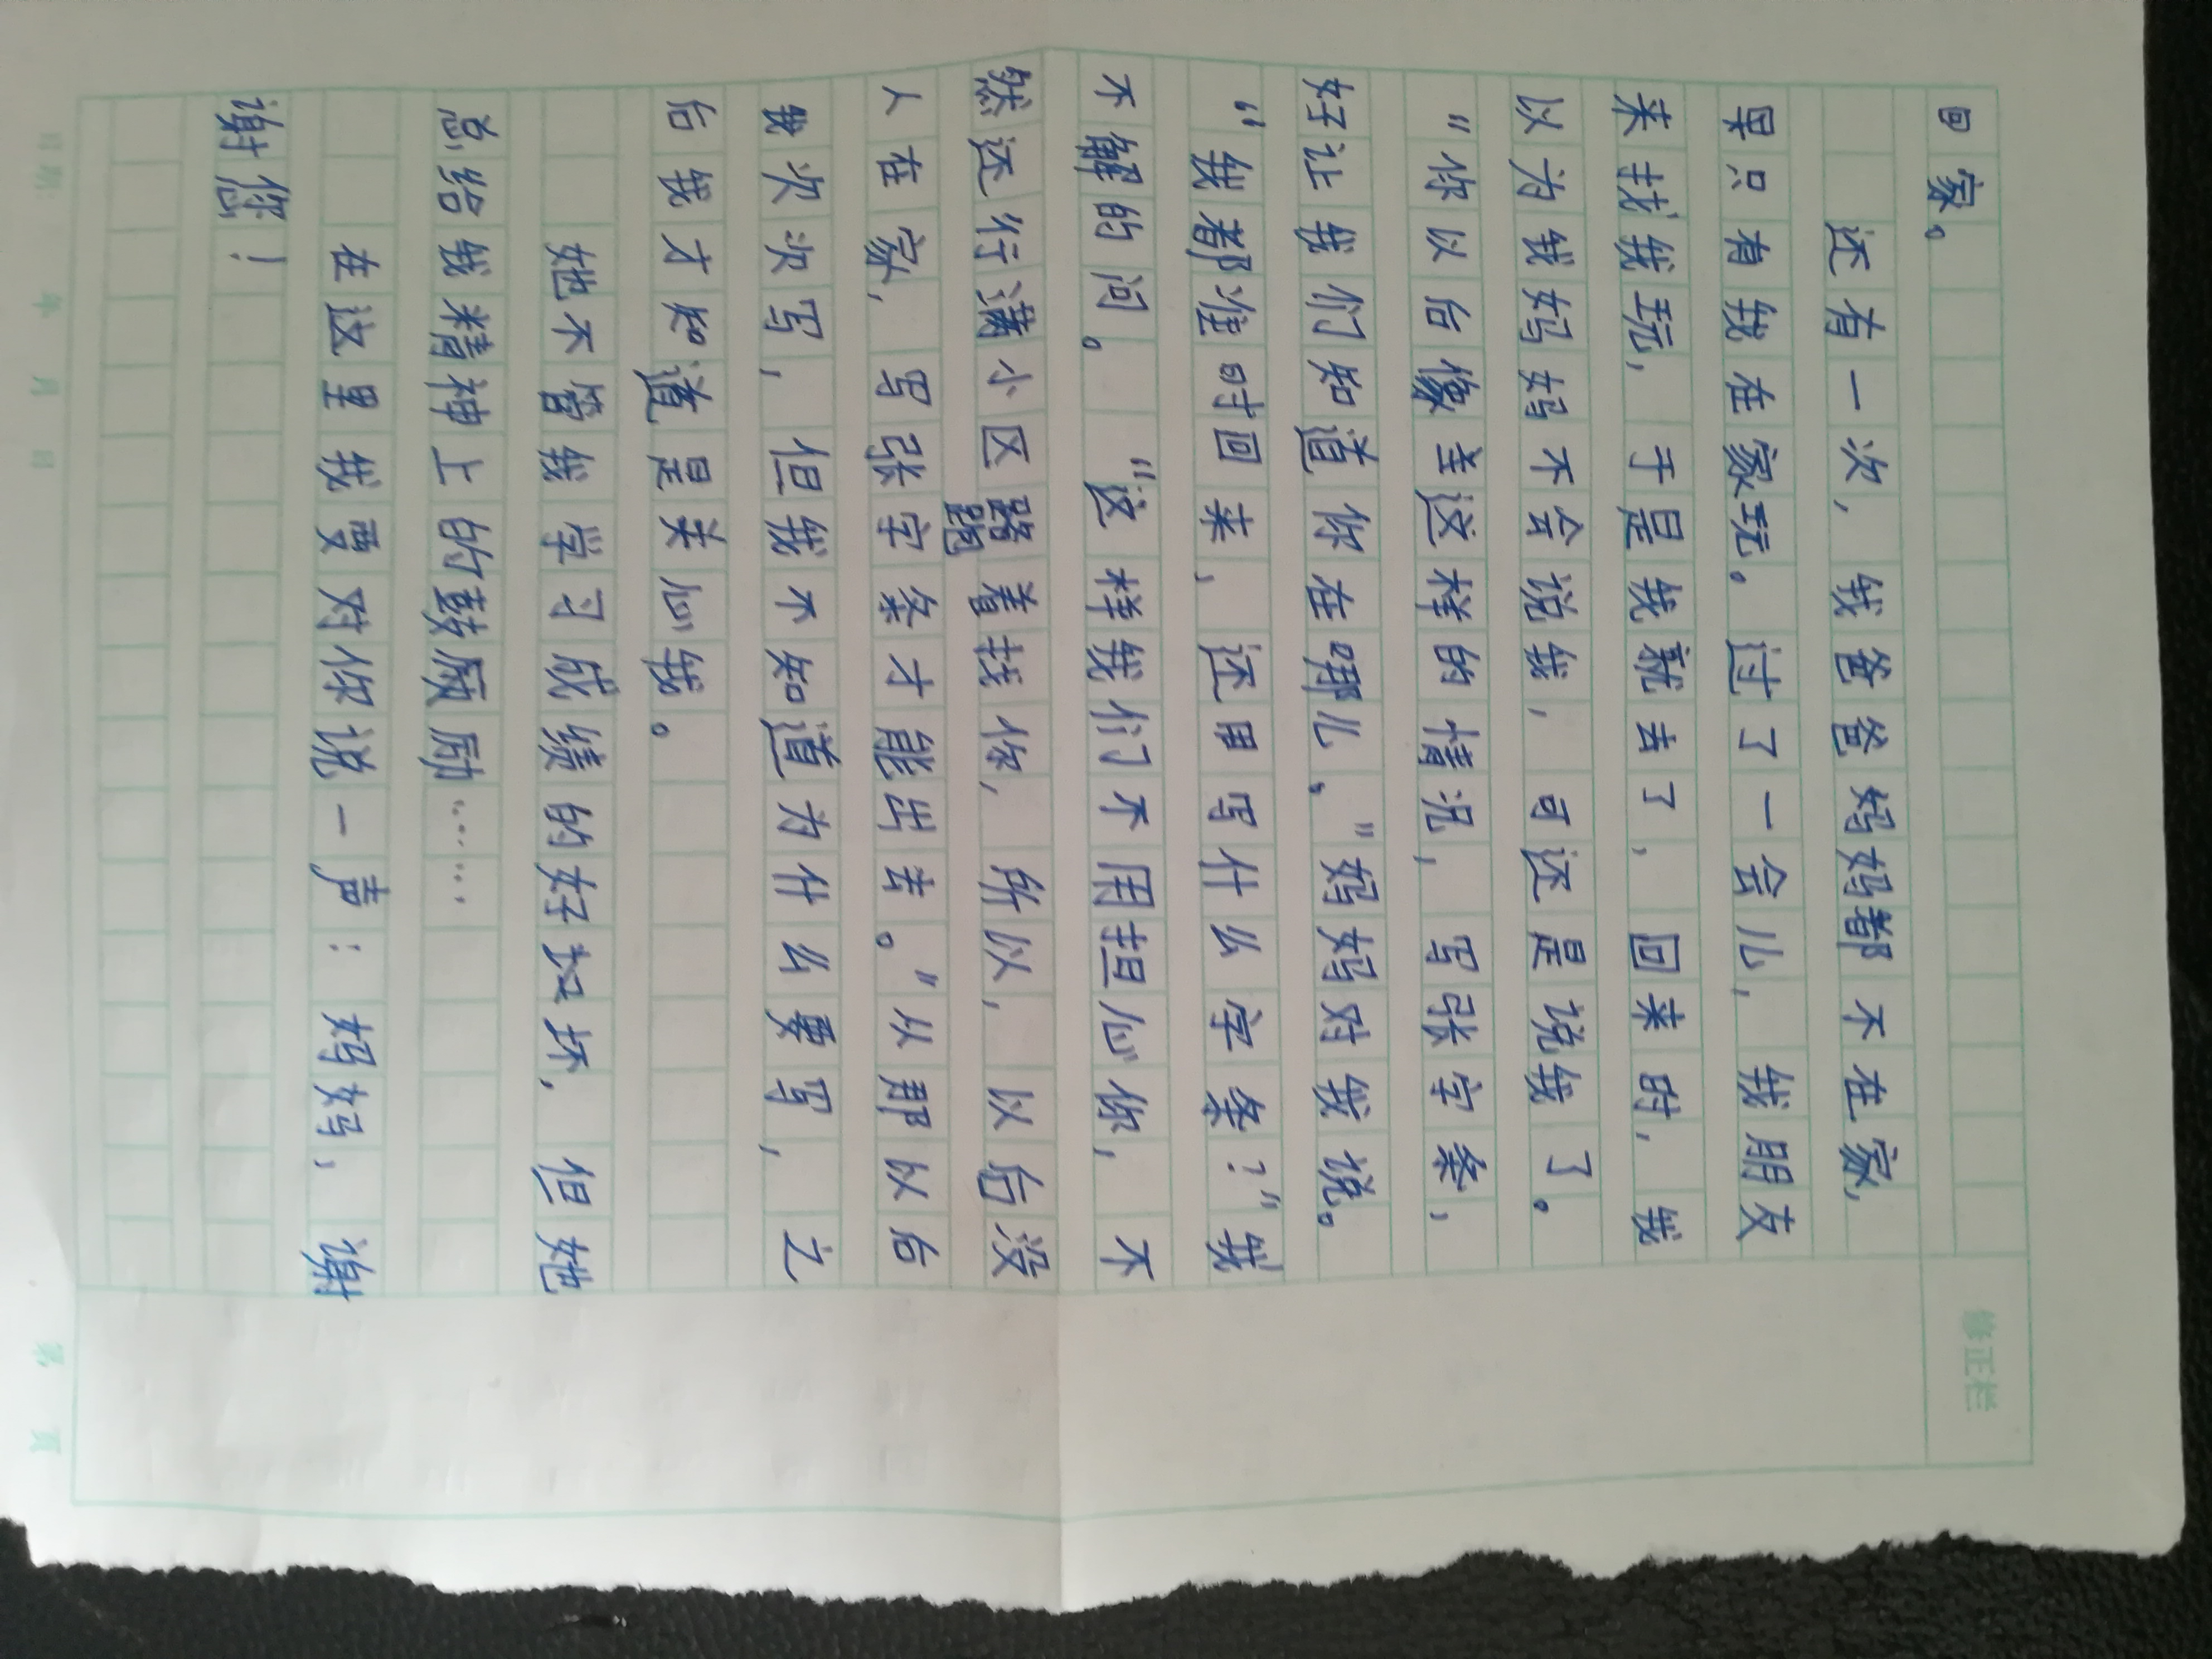 回家。
还有一次，我爸爸妈妈都不在家，
果只有我在家玩。过了一会儿，我朋友
来找我玩，于是我就去了，回来时，我
以为我妈妈不会说我，可还是说我了。
“你以后像这样的情况，写张字条，
好让我们知道你在哪儿。”妈妈对我说。
“我都准时回来，还用写什么字条？”我
不解的问。“这样我们不用担心你，不
然还行满小区跑着找你，所以，以后没
人在家，写张字条才能出去。”从那以后
我次次写，但我不知道为什么要写，之
后我才知道是关心我。
她不管我学习成绩的好与坏，但她
总给我精神上的鼓励……
在这里我要对你说一声：妈妈，谢
谢您！
修正栏
日期 年 月 日
第 页